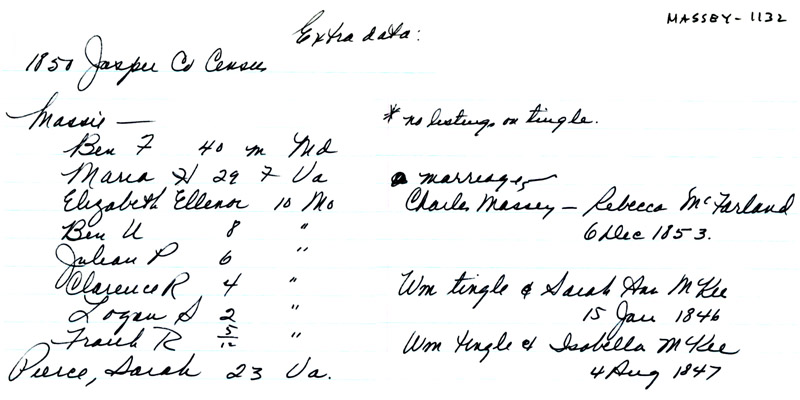 MASSEY-1132
Extra data:
1850 Jasper Co Census
Massie —
Ben F 40 m Md
Maria H 29 F Va
Elizabeth Ellenor 10 Mo
Ben U 8 "
Julian P 6 "
Clarence R 4 "
Logan S 2 "
Frank R 5/12 "
Pierce, Sarah 23 Va.
* no listings on tingle.
marriages
Charles Massey — Rebecca McFarland
6 Dec 1853.
Wm tingle & Sarah Ann McKee
15 Jan 1846
Wm tingle & Isabella McKee
4 Aug 1847